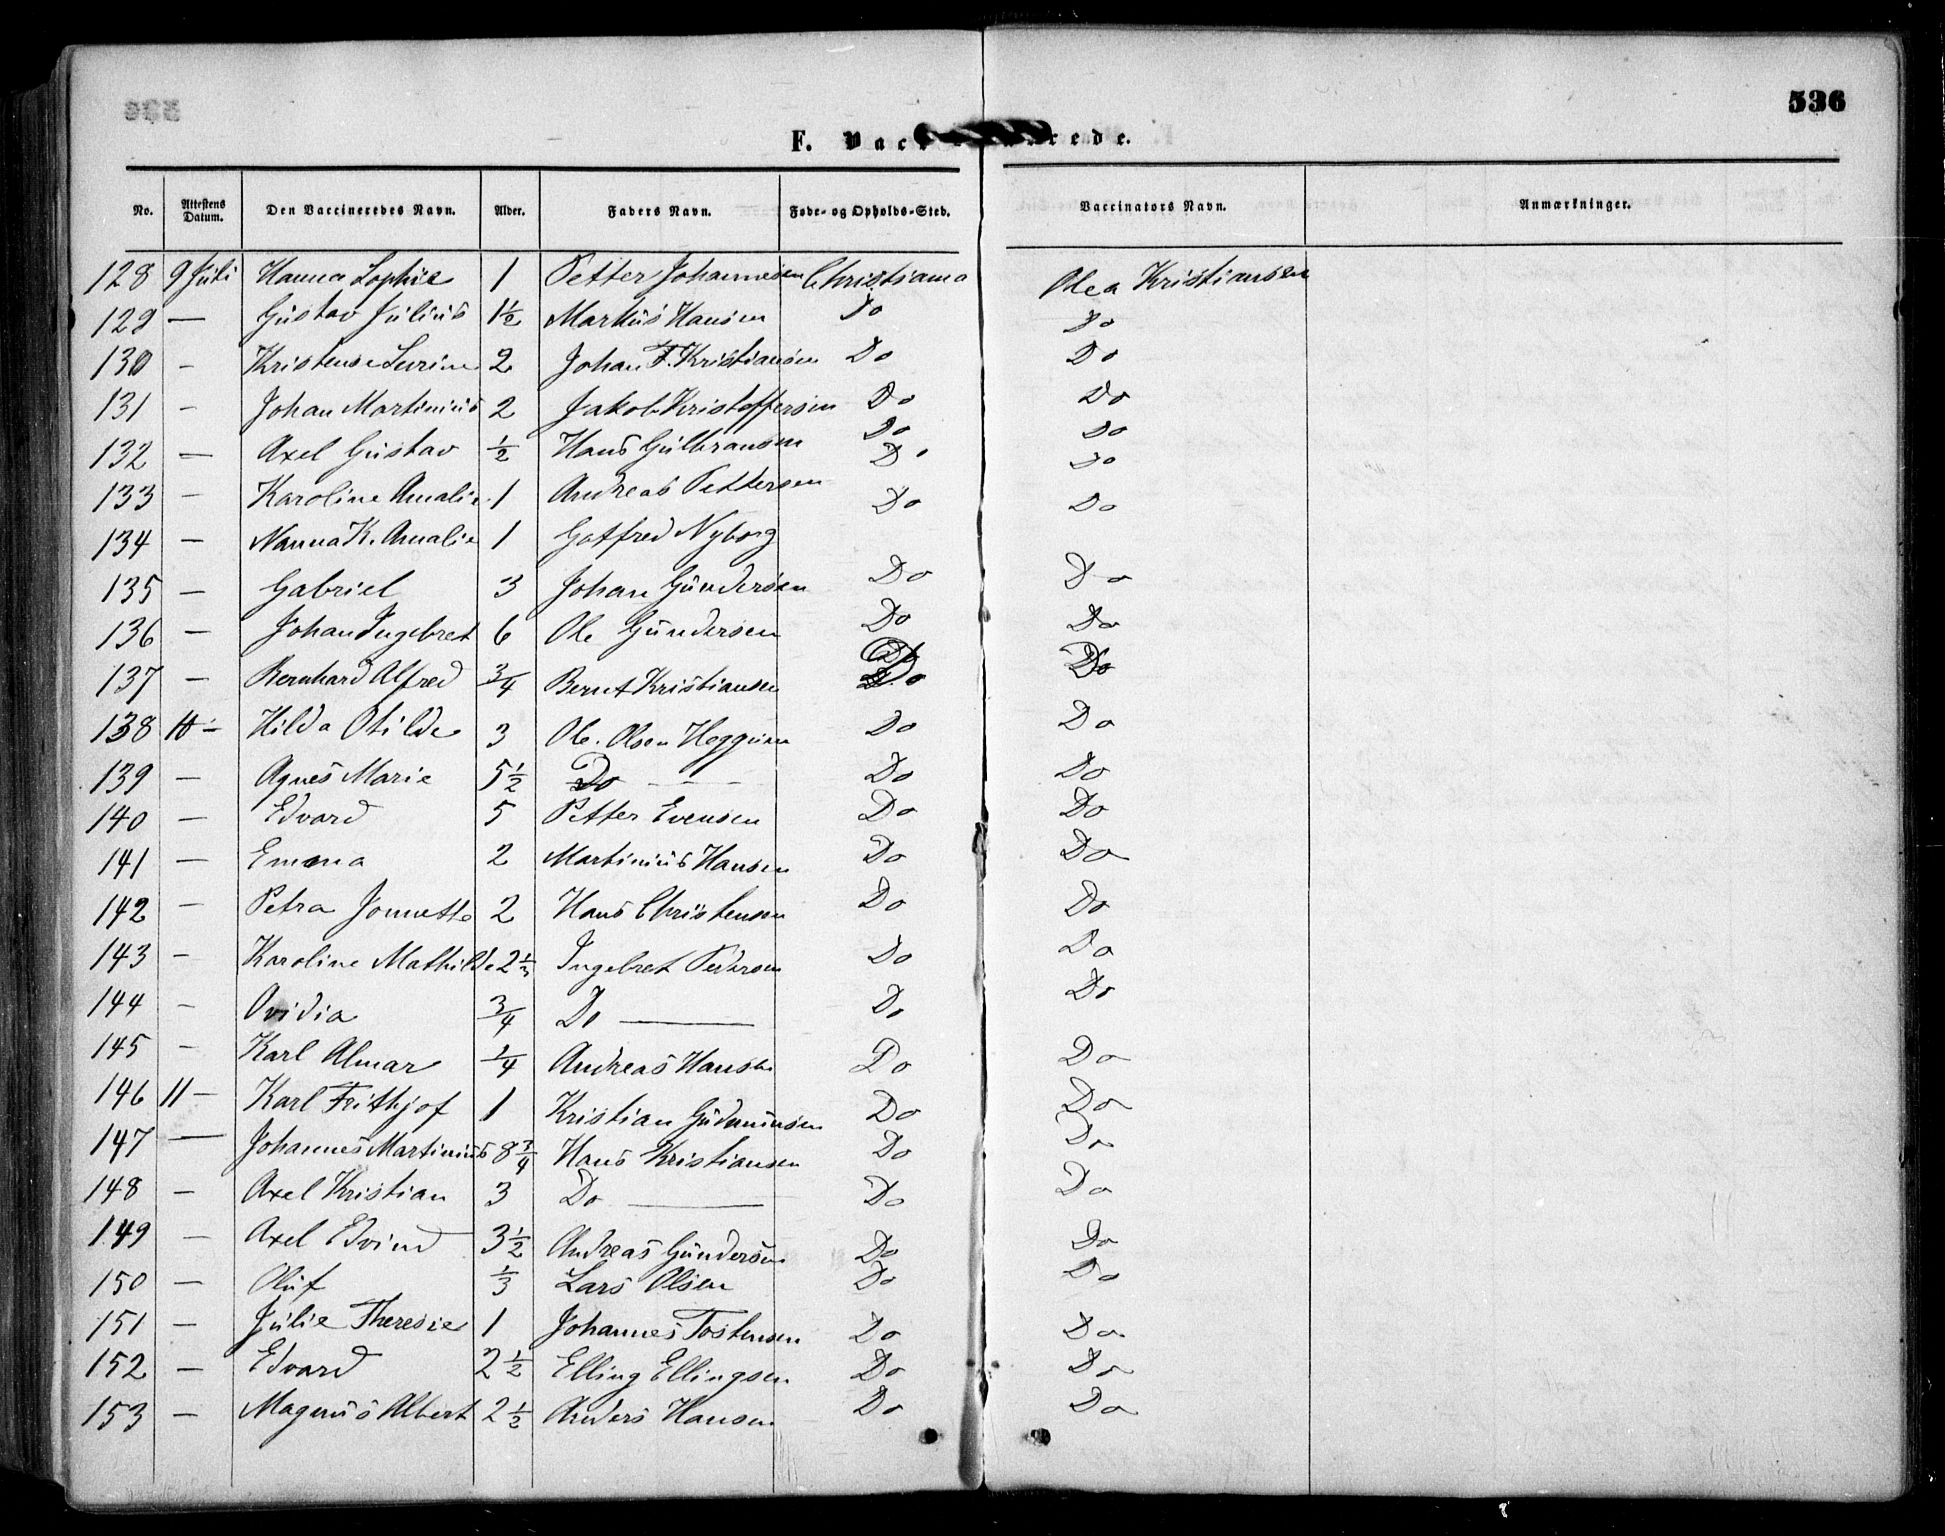 536
F. Vaccinerede.
No. Attestens Datum. Den Vaccineredes Navn. Alder. Faders Navn. Føde- og Opholds-Sted. Vaccinators Navn. Anmærkninger.
128 9 Juli Hanna Sophie 1 Petter Johannesen Christiania Olea Kristiansen
129 — Gustav Julius 1½ Markus Hansen Do Do
130 - Kristense Lurine 2 Johan F. Kristiansen Do Do
131 - Johan Martinius 2 Jakob Kristoffersen Do Do
132 — Axel Gustav ½ Hans Gulbransen Do Do
133 - Karoline Amalie 1 Andreas Pettersen Do Do
134 — Nanna K. Amalie 1 Gotfred Nyborg Do Do
135 — Gabriel 3 Johan Gundersen Do Do
136 — Johan Ingebret 6 Ole Gundersen Do Do
137 — Bernhard Alfred ¾ Bernt Kristiansen Do Do
138 10 — Hilda Otilde 3 Ole Olsen Do Do
139 — Agnes Marie 5½ Do — — — Do Do
140 — Edvard 5 Petter Evensen Do Do
141 — Emma 2 Martinius Hansen Do Do
142 — Petra 2 Hans Christensen Do Do
143 - Karoline Mathilde 2½ Ingebret Pedersen Do Do
144 - Ovidia ¾ Do — Do Do
145 - Karl Almar ¼ Andreas Hansen Do Do
146 11 — Karl Frithjof 1 Kristian Gudmunsen Do Do
147 — Johannes Martinius 8¾ Hans Kristiansen Do Do
148 — Axel Kristian 3 Do — Do Do
149 — Axel Edvind 3½ Andreas Gundersen Do Do
150 — Oluf ⅓ Lars Olsen Do Do
151 — Julie Theresie 1 Johannes Tostensen Do Do
152 — Edvard 2½ Elling Ellingsen Do Do
153 — Magnus Albert 2½ Anders Hansen Do Do